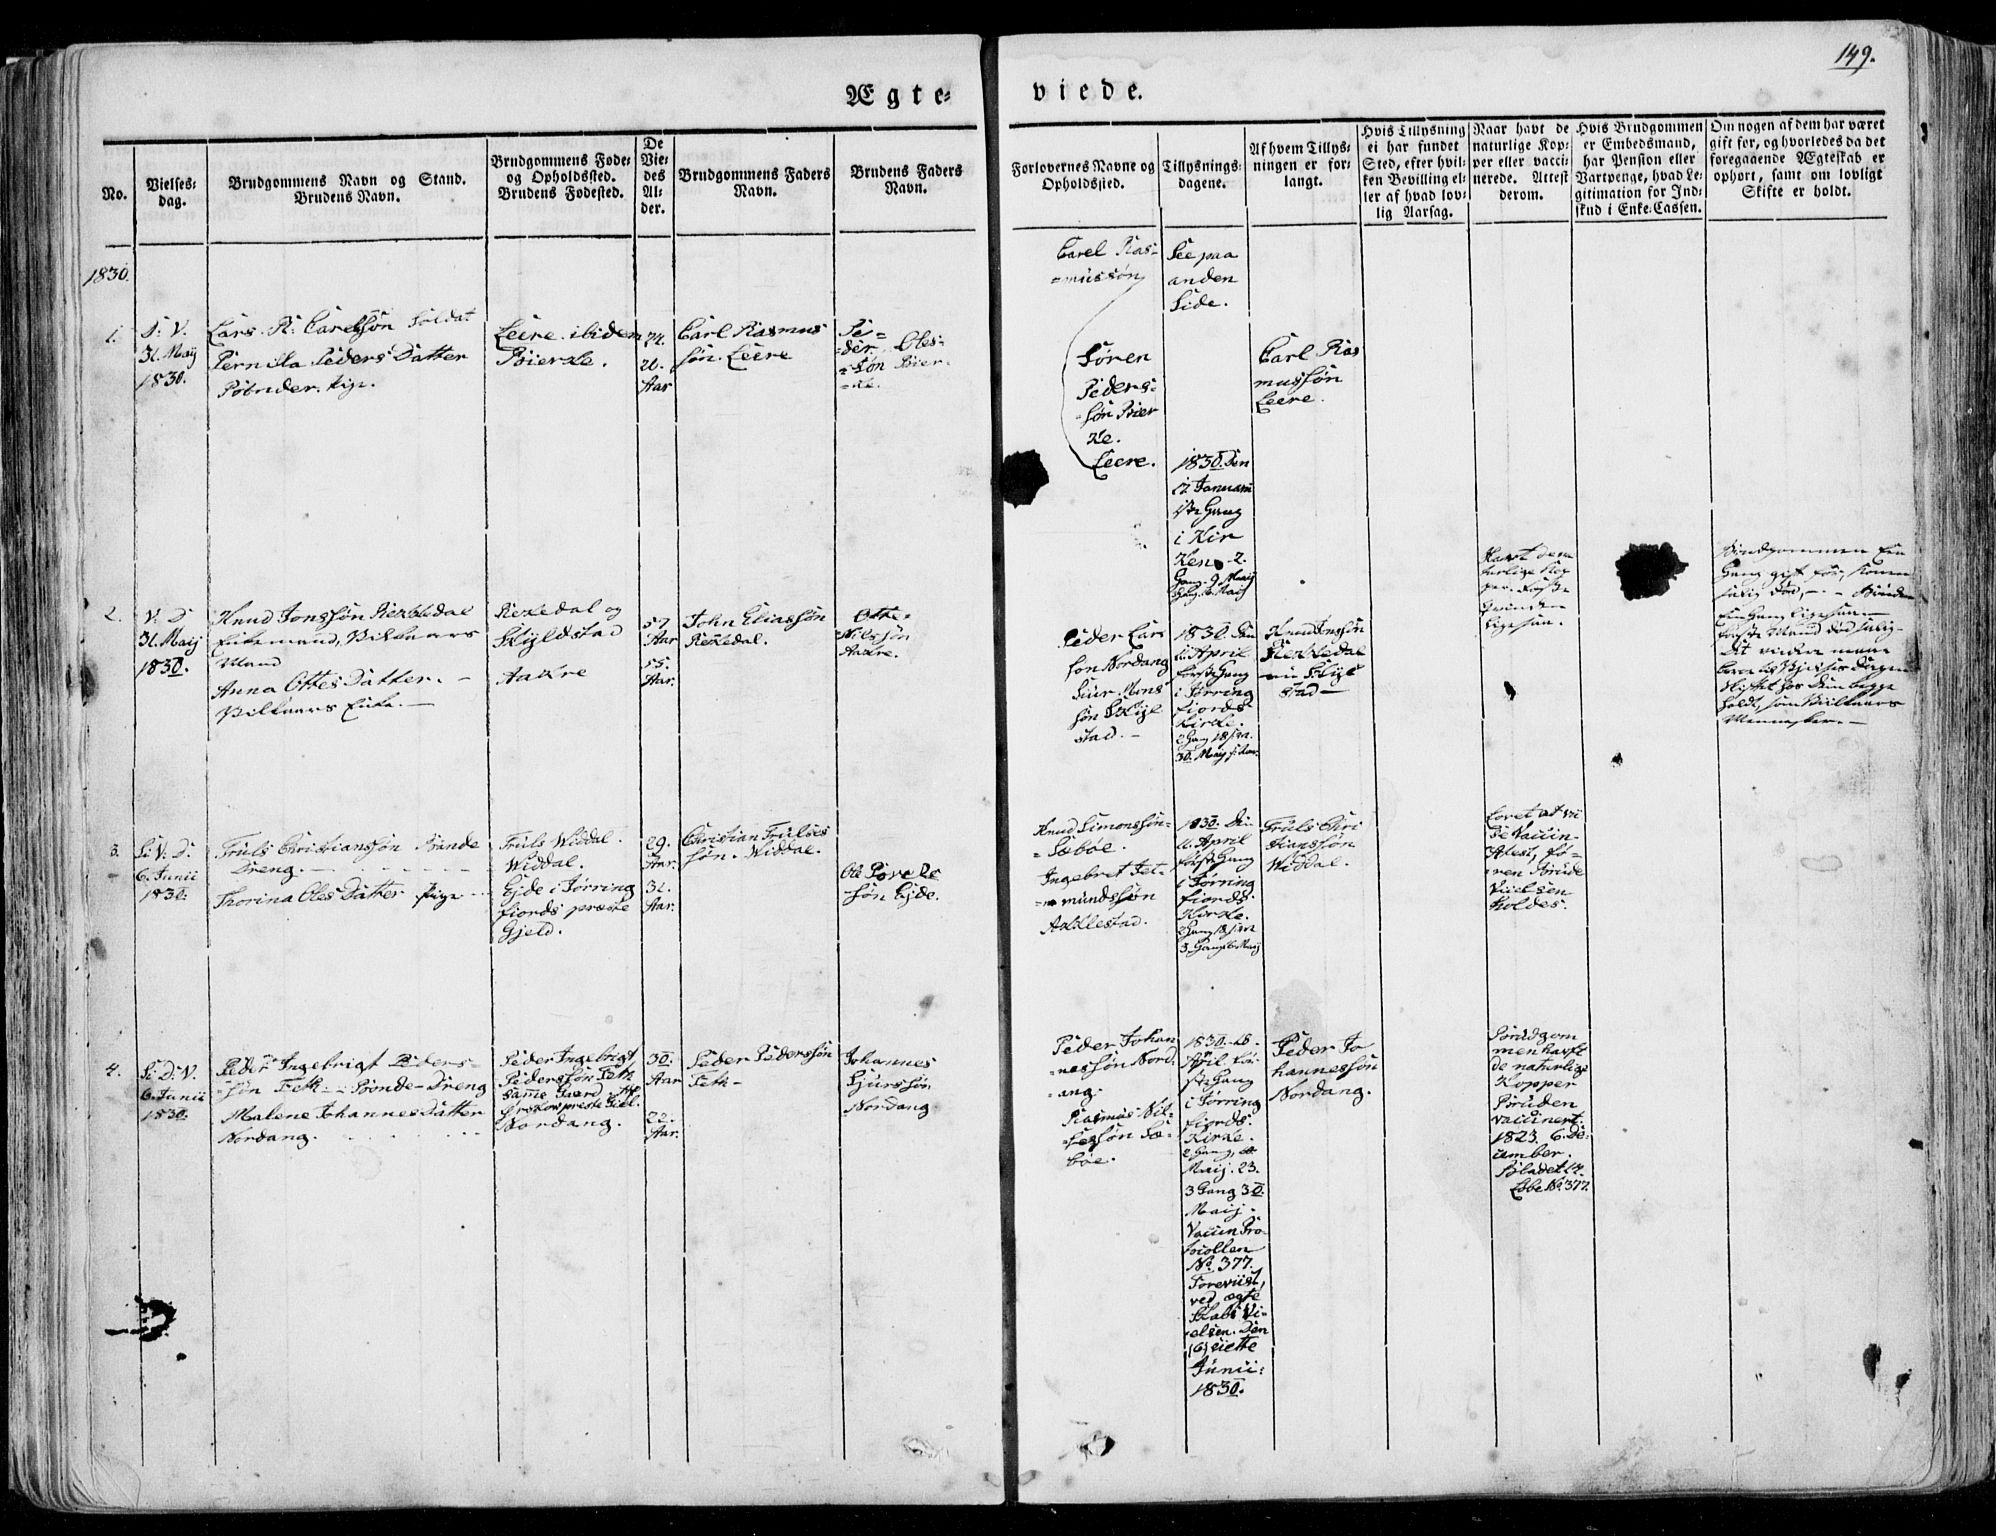 149.
Ægte-
viede.
No.
Vielses-
dag.
Brudgommens Navn og Stand.
Brudens Navn.
Brudgommens Føde-
og Opholdssted.
Brudens Fødested.
De
Vie-
des
Al-
der.
Brudgommens Faders
Navn.
Brudens Faders
Navn.
Forlovernes Navne og
Opholdssted.
Tillysnings-
dagene.
Af hvem Tillys-
ningen er for-
langt.
Hvis Tillysning
ei har fundet
Sted, efter hvil-
ken Bevilling el-
ler af hvad lov-
lig Aarsag.
Naar havt de
naturlige Kop-
per eller vacci-
nerede. Attest
derom.
Hvis Brudgommen
er Embedsmand,
har Pension eller
Vartpenge, hvad Le-
gitimation for Ind-
skud i Enke-Cassen.
Om nogen af dem har været
gift før, og hvorledes da det
foregaaende Ægteskab er
ophørt, samt om lovligt
Skifte er holdt.
1830.
1.
31. Maij
1830.
Lars R. Carelsøn Soldat
Pernilla Peders Datter
Leere ibidem
Bierke.
24.
Aar
Carl Rasmus
søn. Leere
Pe-
der Oles-
søn Bier-
ke.
Carel Ras-
mussøn
Søren
Peders-
søn Bier
ke.
Leere.
See paa
anden
Side.
1830. Den
17. Januarii
1ste Gang
i Kir
ken 2.
Gang 9 Maij
Carl Ras
mussøn
Leere.
2.
V. D
31. Maij
1830.
Knud Jonssøn Rekkedal
Enkemand, Vilkaars
Mand
Anna Ottes Datter. -
Vilkaars Enke. -
Rekkedal og
Skylstad
Aakre
57
Aar
55.
Aar.
John Eliassøn
Rekkedal.
Otte
Nilssøn
Aakre.
Peder Lars
søn Nordang
Siur Mons
søn Skyl
stad. -
1830. Den
11. April
første Gang
i Jørring
fiords
Kirke.
2 Gang 18
30. Maij
Knud Jonssøn
Rekkedal
Skyl
stad -
Havt de na
turlige Kop
per
qvinden
ligesaa.
Brudgommen een
Gang gift før, Konen
Bruden
Een Gang ligesaa
første Mand død
holdt, som Vilkaars
Mennesker. -
3.
6. Junii
1830.
Truls Christianssøn Bonde
Dreng. -
Thorina Oles Datter Pige
Truls Widdal.
Widdal.
Ejde i Jørring
fiords præste
Gjeld.
29.
Aar.
32.
Aar.
Christian Trulses
søn. Widdal.
søn Ejde.
Knud Simonssøn
Sæbøe.
Ingebret Jet-
mundssøn
Aklestad.
1830. Den
11. April
første Gang
i Jørring
fiords
Kirke.
2 Gang 18
3 Gang 16 Maij
Truls Chri
stianssøn
Widdal.
Lovet at vi
se Vaccin-
Attest, fø-
ren Brude
Vielsen
holdes.
4.
6. Junii
1830.
Peder Ingebrigt Peders-
søn Feth. - Bonde-Dreng
Malene Johannes Datter
Nordang.
Peder Ingebrigt
Pederssøn Feth
samme Gaard
Ørskovs præste Giel.
Nordang.
30.
Aar
22.
Aar.
Peder Pederssøn
Feth -
Johannes
Sjurssøn
Nordang
Peder Johan
nessøn Nord
ang.
Rasmus Nil-
sessøn Sæ-
bøe.
1830. 18.
April før-
ste Gang
i Jørring
fiords
Kirke.
2 Gang,
Maij. 23.
3 Gang 30.
Maij.
Vaccin Pro-
tocollen
No. 377.
Foreviist,
ved ægte
skabs Vi-
elsen. Den
(6) siette
Junii
1830.
Peder Jo
hannessøn
Nordang.
Brudgom
men havt
de naturlige
Kopper
Bruden
vaccineret
1823. 6. De-
cember.
Bladet 14.
Løbe No. 377.